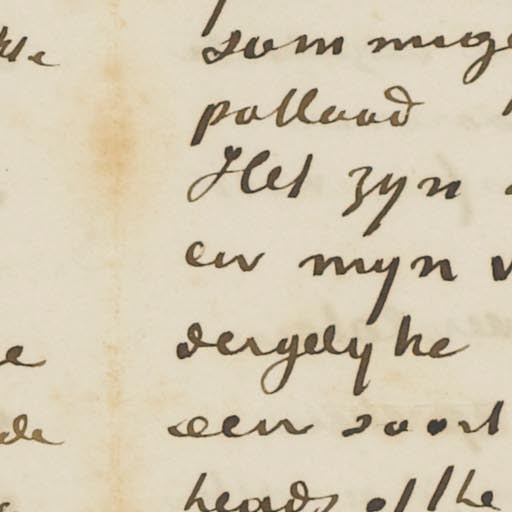 sommige
potlood
Het zyn
en myn
dergelyke
een soort
heads of the